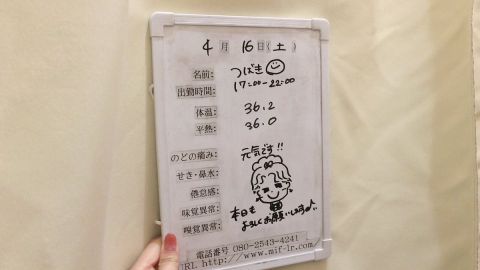 4月16日(土)
名前: つばき
出勤時間: 17:00-22:00
体温: 36.2
平熱: 36.0
元気です!!
のどの痛み:
せき・鼻水:
倦怠感:
味覚異常:
嗅覚異常:
本日も
よろしくお願いします♪
電話番号 080-2543-4241
URL http://www.mif-lr.com/